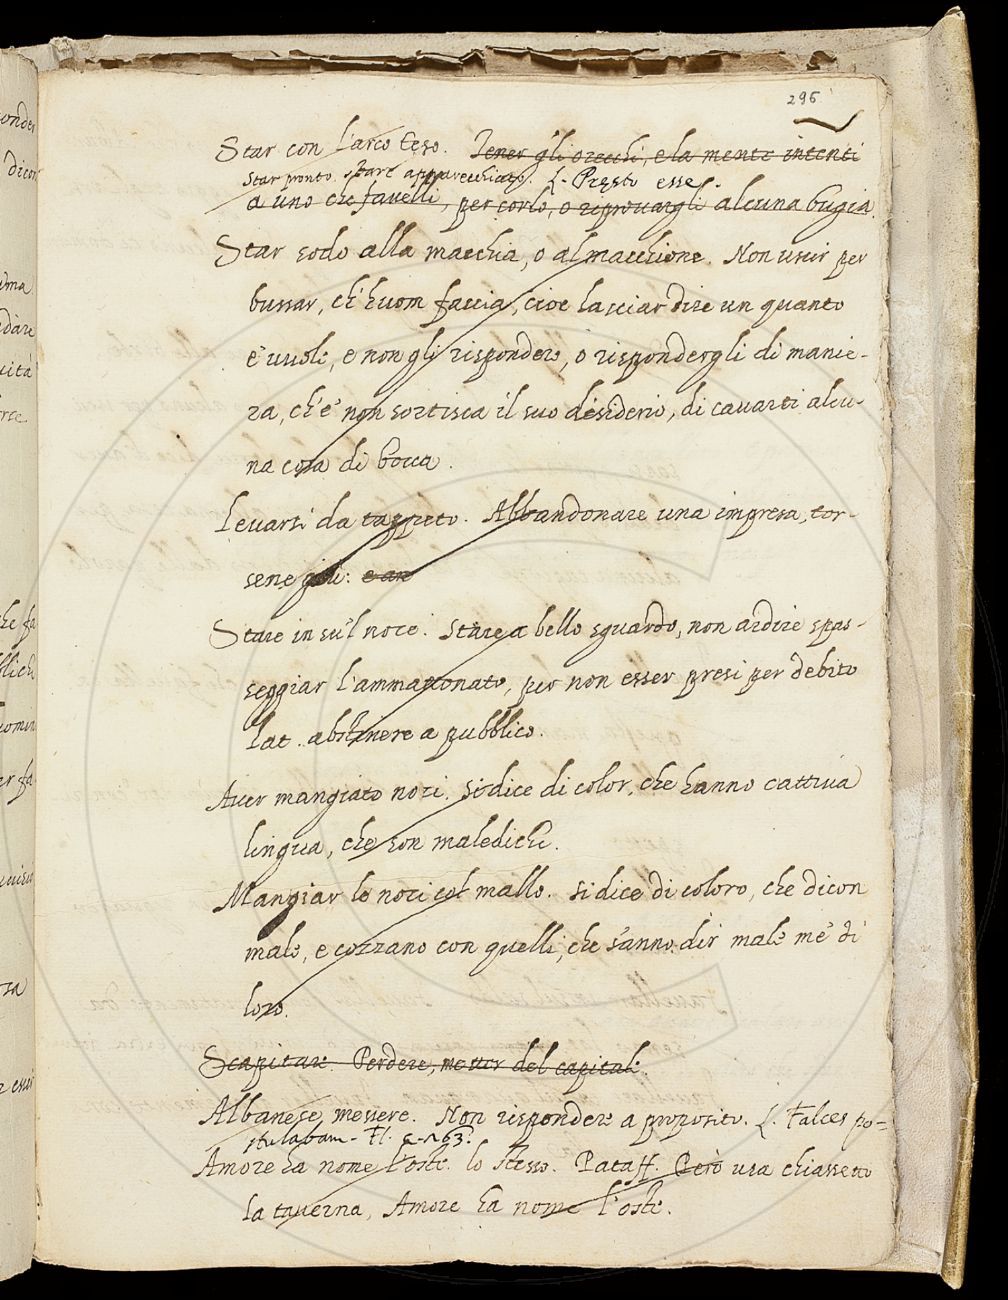 296
Star con l'arco teso. Tener gli orecchi, e la mente intenti
Star pronto. stare apparecchiato. L. Presto esse.
a uno che favelli, per corlo, o riprovargli alcuna bugia.
Star sodo alla macchia, o al macchione. Non uscir per
bussar, ch'huom faccia, cioe lasciar dire un quanto
e' vuole, e non gli rispondere, o rispondergli di manie-
ra, ch'e' non sortisca il suo desiderio, di cavarti alcu-
na cosa di bocca.
Levarsi da tappeto. Abbandonare una impresa, tor-
sene giù: e an
Stare in su'l noce. Stare a bello sguardo, non ardire spas-
seggiar l'ammattonato, per non esser presi per debito
lat. abstinere a pubblico.
Aver mangiato noci. Si dice di color, che hanno cattiva
lingua, che son maledichi.
Mangiar le noci col mallo. Si dice di coloro, che dicon
male, e cozzano con quelli, che sanno dir male me' di
loro.
Scapitare. Perdere, metter del capitale.
Albanese messere. Non rispondere a proposito. L. Falces po=
stulabam. Fl.
Amore ha nome l'oste. lo stesso. Pataff. Però usa chiassetto
la taverna, Amore ha nome l'oste.